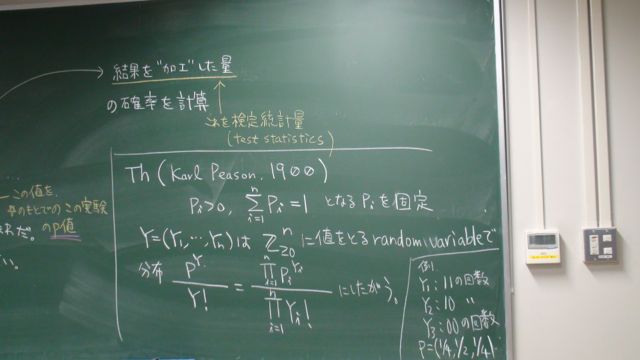 結果を"加工"した量
の確率を計算
これを検定統計量
(test statistics)
この値を
のもとでのこの実験
のp値
Th (Karl Peason, 1900)
Pi>0, Σ_{i=1}^{n} Pi = 1 となる Pi を固定
Y=(Y1,…,Yn)は Z^n_{≥0} に値をとる random variable で
分布 P^Y / Y! = ∏_{i=1}^{n} Pi^{Yi} / ∏_{i=1}^{n} Yi! にしたがう。
例
Y1: 11の回数
Y2: 10 〃
Y3: 00の回数
P=(1/4, 1/2, 1/4)